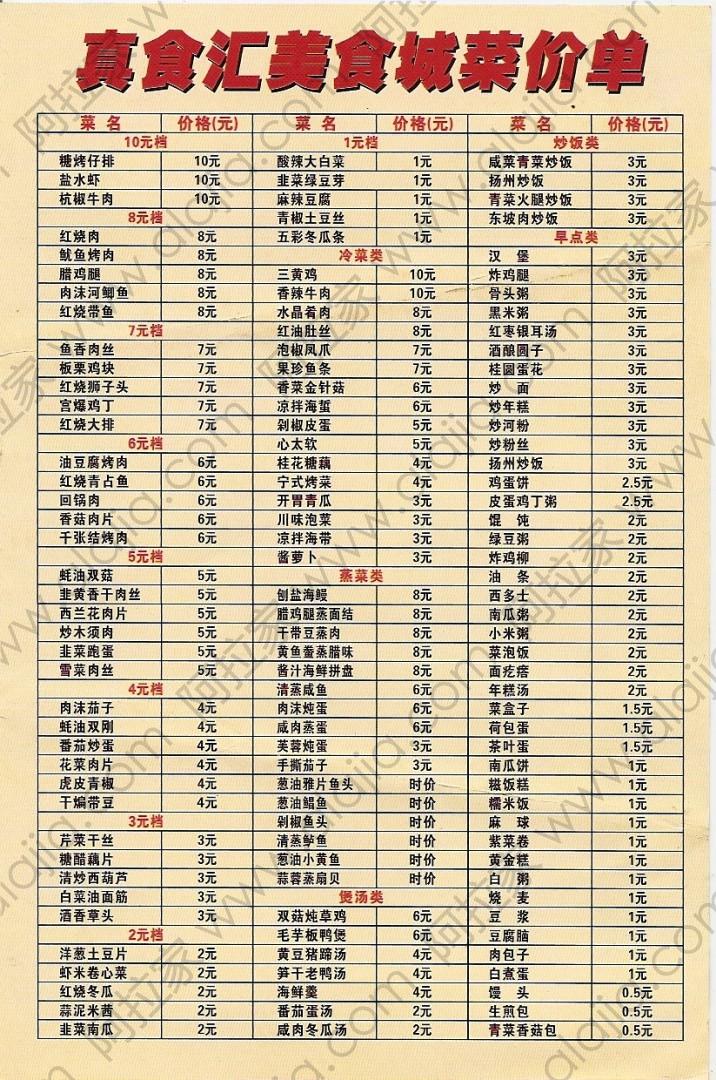 真食汇美食城菜价单
菜 名 价格(元)
10元档
糖烤仔排 10元
盐水虾 10元
杭椒牛肉 10元
8元档
红烧肉 8元
鱿鱼烤肉 8元
腊鸡腿 8元
肉沫河鲫鱼 8元
红烧带鱼 8元
7元档
鱼香肉丝 7元
板栗鸡块 7元
红烧狮子头 7元
宫爆鸡丁 7元
红烧大排 7元
6元档
油豆腐烤肉 6元
红烧青占鱼 6元
回锅肉 6元
香菇肉片 6元
千张结烤肉 6元
5元档
蚝油双菇 5元
韭黄香干肉丝 5元
西兰花肉片 5元
炒木须肉 5元
韭菜跑蛋 5元
雪菜肉丝 5元
4元档
肉沫茄子 4元
蚝油双刚 4元
番茄炒蛋 4元
花菜肉片 4元
虎皮青椒 4元
干煸带豆 4元
3元档
芹菜干丝 3元
糖醋藕片 3元
清炒西葫芦 3元
白菜油面筋 3元
酒香草头 3元
2元档
洋葱土豆片 2元
虾米卷心菜 2元
红烧冬瓜 2元
蒜泥米茜 2元
韭菜南瓜 2元
菜 名 价格(元)
1元档
酸辣大白菜 1元
韭菜绿豆芽 1元
麻辣豆腐 1元
青椒土豆丝 1元
五彩冬瓜条 1元
冷菜类
三黄鸡 10元
香辣牛肉 10元
水晶肴肉 8元
红油肚丝 8元
泡椒凤爪 7元
果珍鱼条 7元
香菜金针菇 6元
凉拌海蜇 6元
剁椒皮蛋 5元
心太软 5元
桂花糖藕 4元
宁式烤菜 4元
开胃青瓜 3元
川味泡菜 3元
凉拌海带 3元
酱萝卜 3元
蒸菜类
刨盐海鳗 8元
腊鸡腿蒸面结 8元
干带豆蒸肉 8元
黄鱼鲞蒸腊味 8元
酱汁海鲜拼盘 8元
清蒸咸鱼 6元
肉沫炖蛋 6元
咸肉蒸蛋 6元
芙蓉炖蛋 3元
手撕茄子 3元
葱油雅片鱼头 时价
葱油鲳鱼 时价
剁椒鱼头 时价
清蒸鲈鱼 时价
葱油小黄鱼 时价
蒜蓉蒸扇贝 时价
煲汤类
双菇炖草鸡 6元
毛芋板鸭煲 6元
黄豆猪蹄汤 4元
笋干老鸭汤 4元
海鲜羹 4元
番茄蛋汤 2元
咸肉冬瓜汤 2元
菜 名 价格(元)
炒饭类
咸菜青菜炒饭 3元
扬州炒饭 3元
青菜火腿炒饭 3元
东坡肉炒饭 3元
早点类
汉 堡 3元
炸鸡腿 3元
骨头粥 3元
黑米粥 3元
红枣银耳汤 3元
酒酿圆子 3元
桂圆蛋花 3元
炒 面 3元
炒年糕 3元
炒河粉 3元
炒粉丝 3元
扬州炒饭 3元
鸡蛋饼 2.5元
皮蛋鸡丁粥 2.5元
馄 饨 2元
绿豆粥 2元
炸鸡柳 2元
油 条 2元
西多士 2元
南瓜粥 2元
小米粥 2元
菜泡饭 2元
面疙瘩 2元
年糕汤 2元
菜盒子 1.5元
荷包蛋 1.5元
茶叶蛋 1.5元
南瓜饼 1元
糍饭糕 1元
糯米饭 1元
麻 球 1元
紫菜卷 1元
黄金糕 1元
白 粥 1元
烧 麦 1元
豆 浆 1元
豆腐脑 1元
肉包子 1元
白煮蛋 1元
馒 头 0.5元
生煎包 0.5元
青菜香菇包 0.5元
阿拉家 www.alajia.com